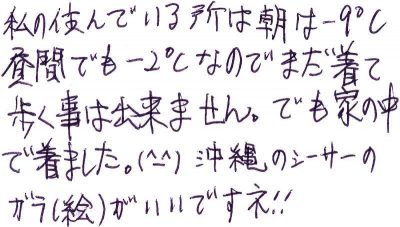 私の住んでいる所は朝は-9℃
昼間でも-2℃なのでまだ着て
歩く事は出来ません。でも家の中
で着ました。(^^) 沖縄のシーサーの
ガラ(絵)がいいですネ!!